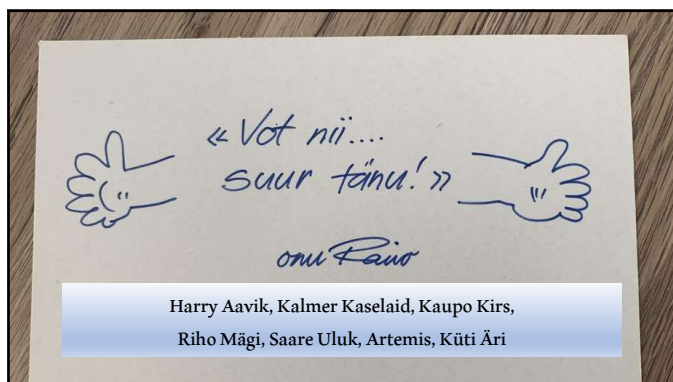 « Vot nii....
suur tänu! »
onu Raivo
Harry Aavik, Kalmer Kaselaid, Kaupo Kirs,
Riho Mägi, Saare Uluk, Artemis, Küti Äri